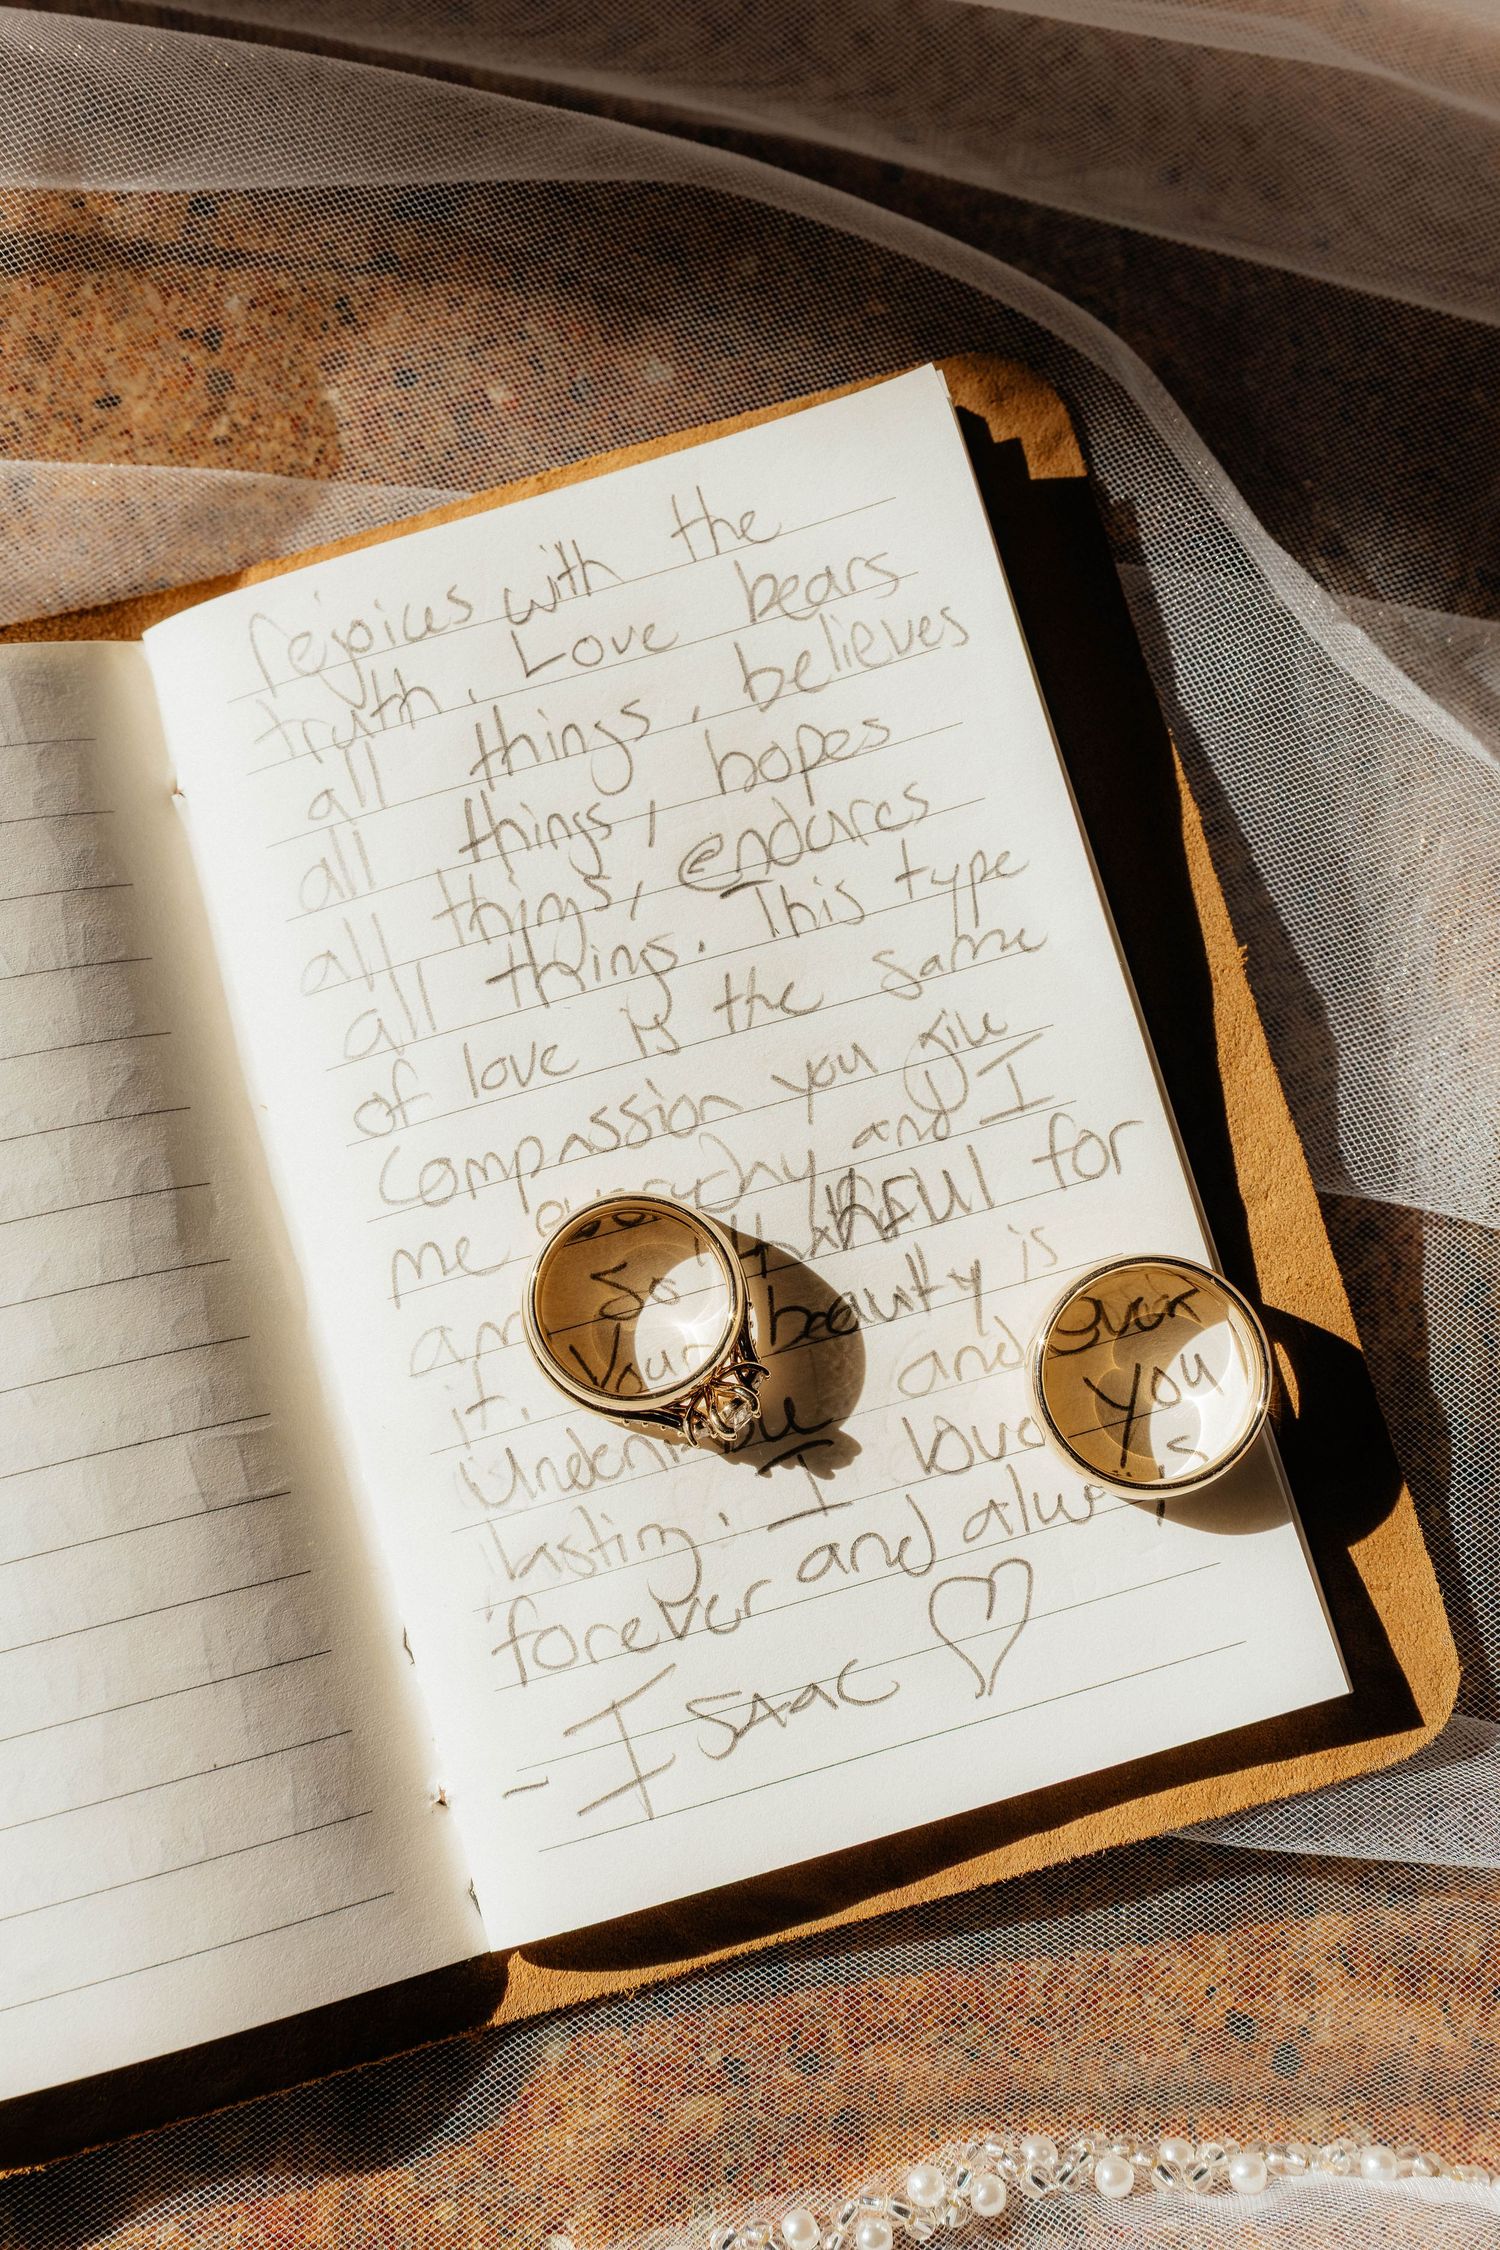 rejoices with the
truth. Love bears
all things, believes
all things, hopes
all things, endures
all things. This type
of love is the same
Compassion you give
me everyday and I
am so thankful for
it. Your beauty is
Undeniable and ever
lasting. I love you
forever and always
- Isaac